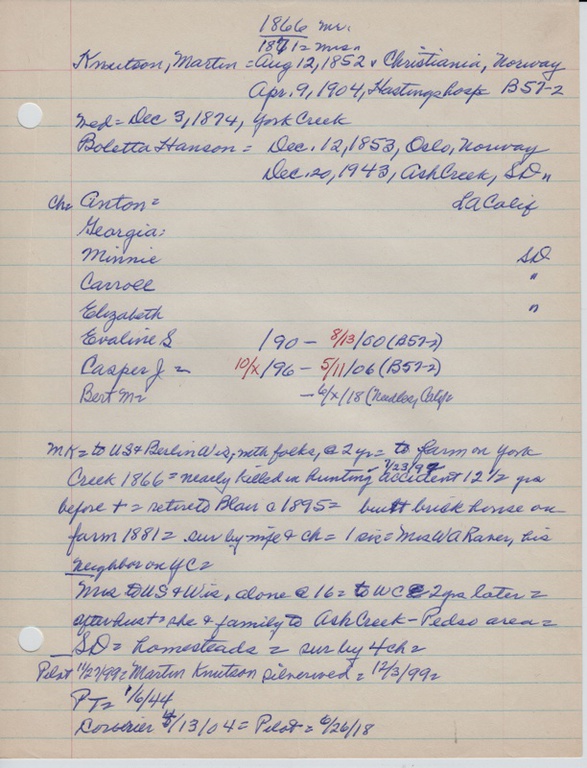 1866 mr.
1871 = mrs.
Knutson, Martin = Aug 12, 1852 Christiania, Norway
Apr. 9, 1904, Hastings hosp B57-2
Wed = Dec 3, 1874, York Creek
Boletta Hanson = Dec. 12, 1853, Oslo, Norway
Dec. 20, 1943, Ash Creek, SD
Ch = Anton = LA Calif
Georgia:
Minnie SD
Carroll "
Elizabeth "
Evaline S /90 - 8/13/00 (B57-2)
Casper J = 10/x/96 - 5/11/06 (B57-2)
Bert M = - 6/x/18 (Needles, Calif =
MK = to US & Berlin Wis, with folks, @ 2 yr = to farm on York
Creek 1866 = nearly killed in hunting accident 12 1/2 yrs
before + = retire to Blair c 1895 = built brick house on
farm 1881 = sur by wife & ch = 1 sis = Mrs WA Raner, his
neighbor on YC =
Mrs to US & Wis, alone @ 16 = to WC 2 yrs later =
after she & family to Ash Creek - area =
SD = homesteads = sur by 4 ch =
Pilot 11/27/99 = Martin Knutson silverwed = 12/3/99 =
PT = 1/6/44
/13/04 = Pilot = 6/26/18